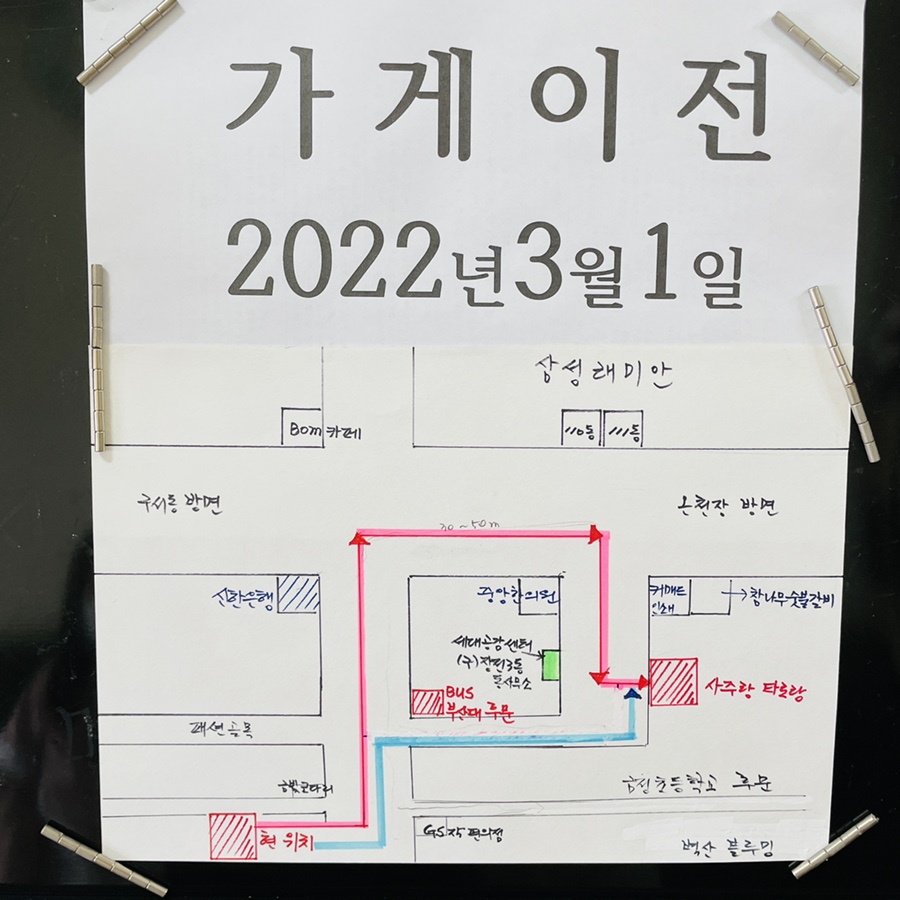 가게이전
2022년3월1일
삼성래미안
BOM 카페
110동
111동
구서동 방면
온천장 방면
30~50m
신한은행
중앙한의원
커매드
인쇄
참나무숯불갈비
세대공감센터
(구)장전3동
동사무소
BUS
부산대 후문
사주랑 타로랑
패션골목
금정초등학교 후문
현 위치
편의점
벽산 블루밍